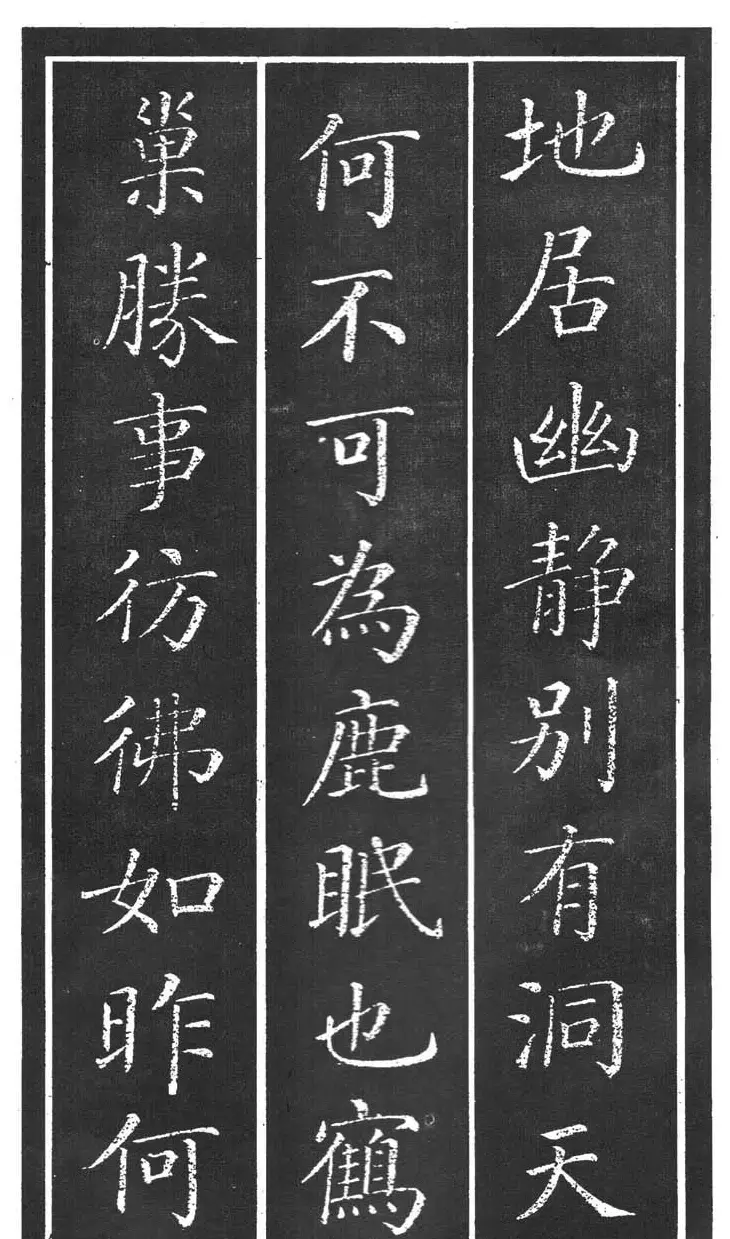 地居幽静别有洞天
何不可為鹿眠也鶴
巢勝事彷彿如昨何